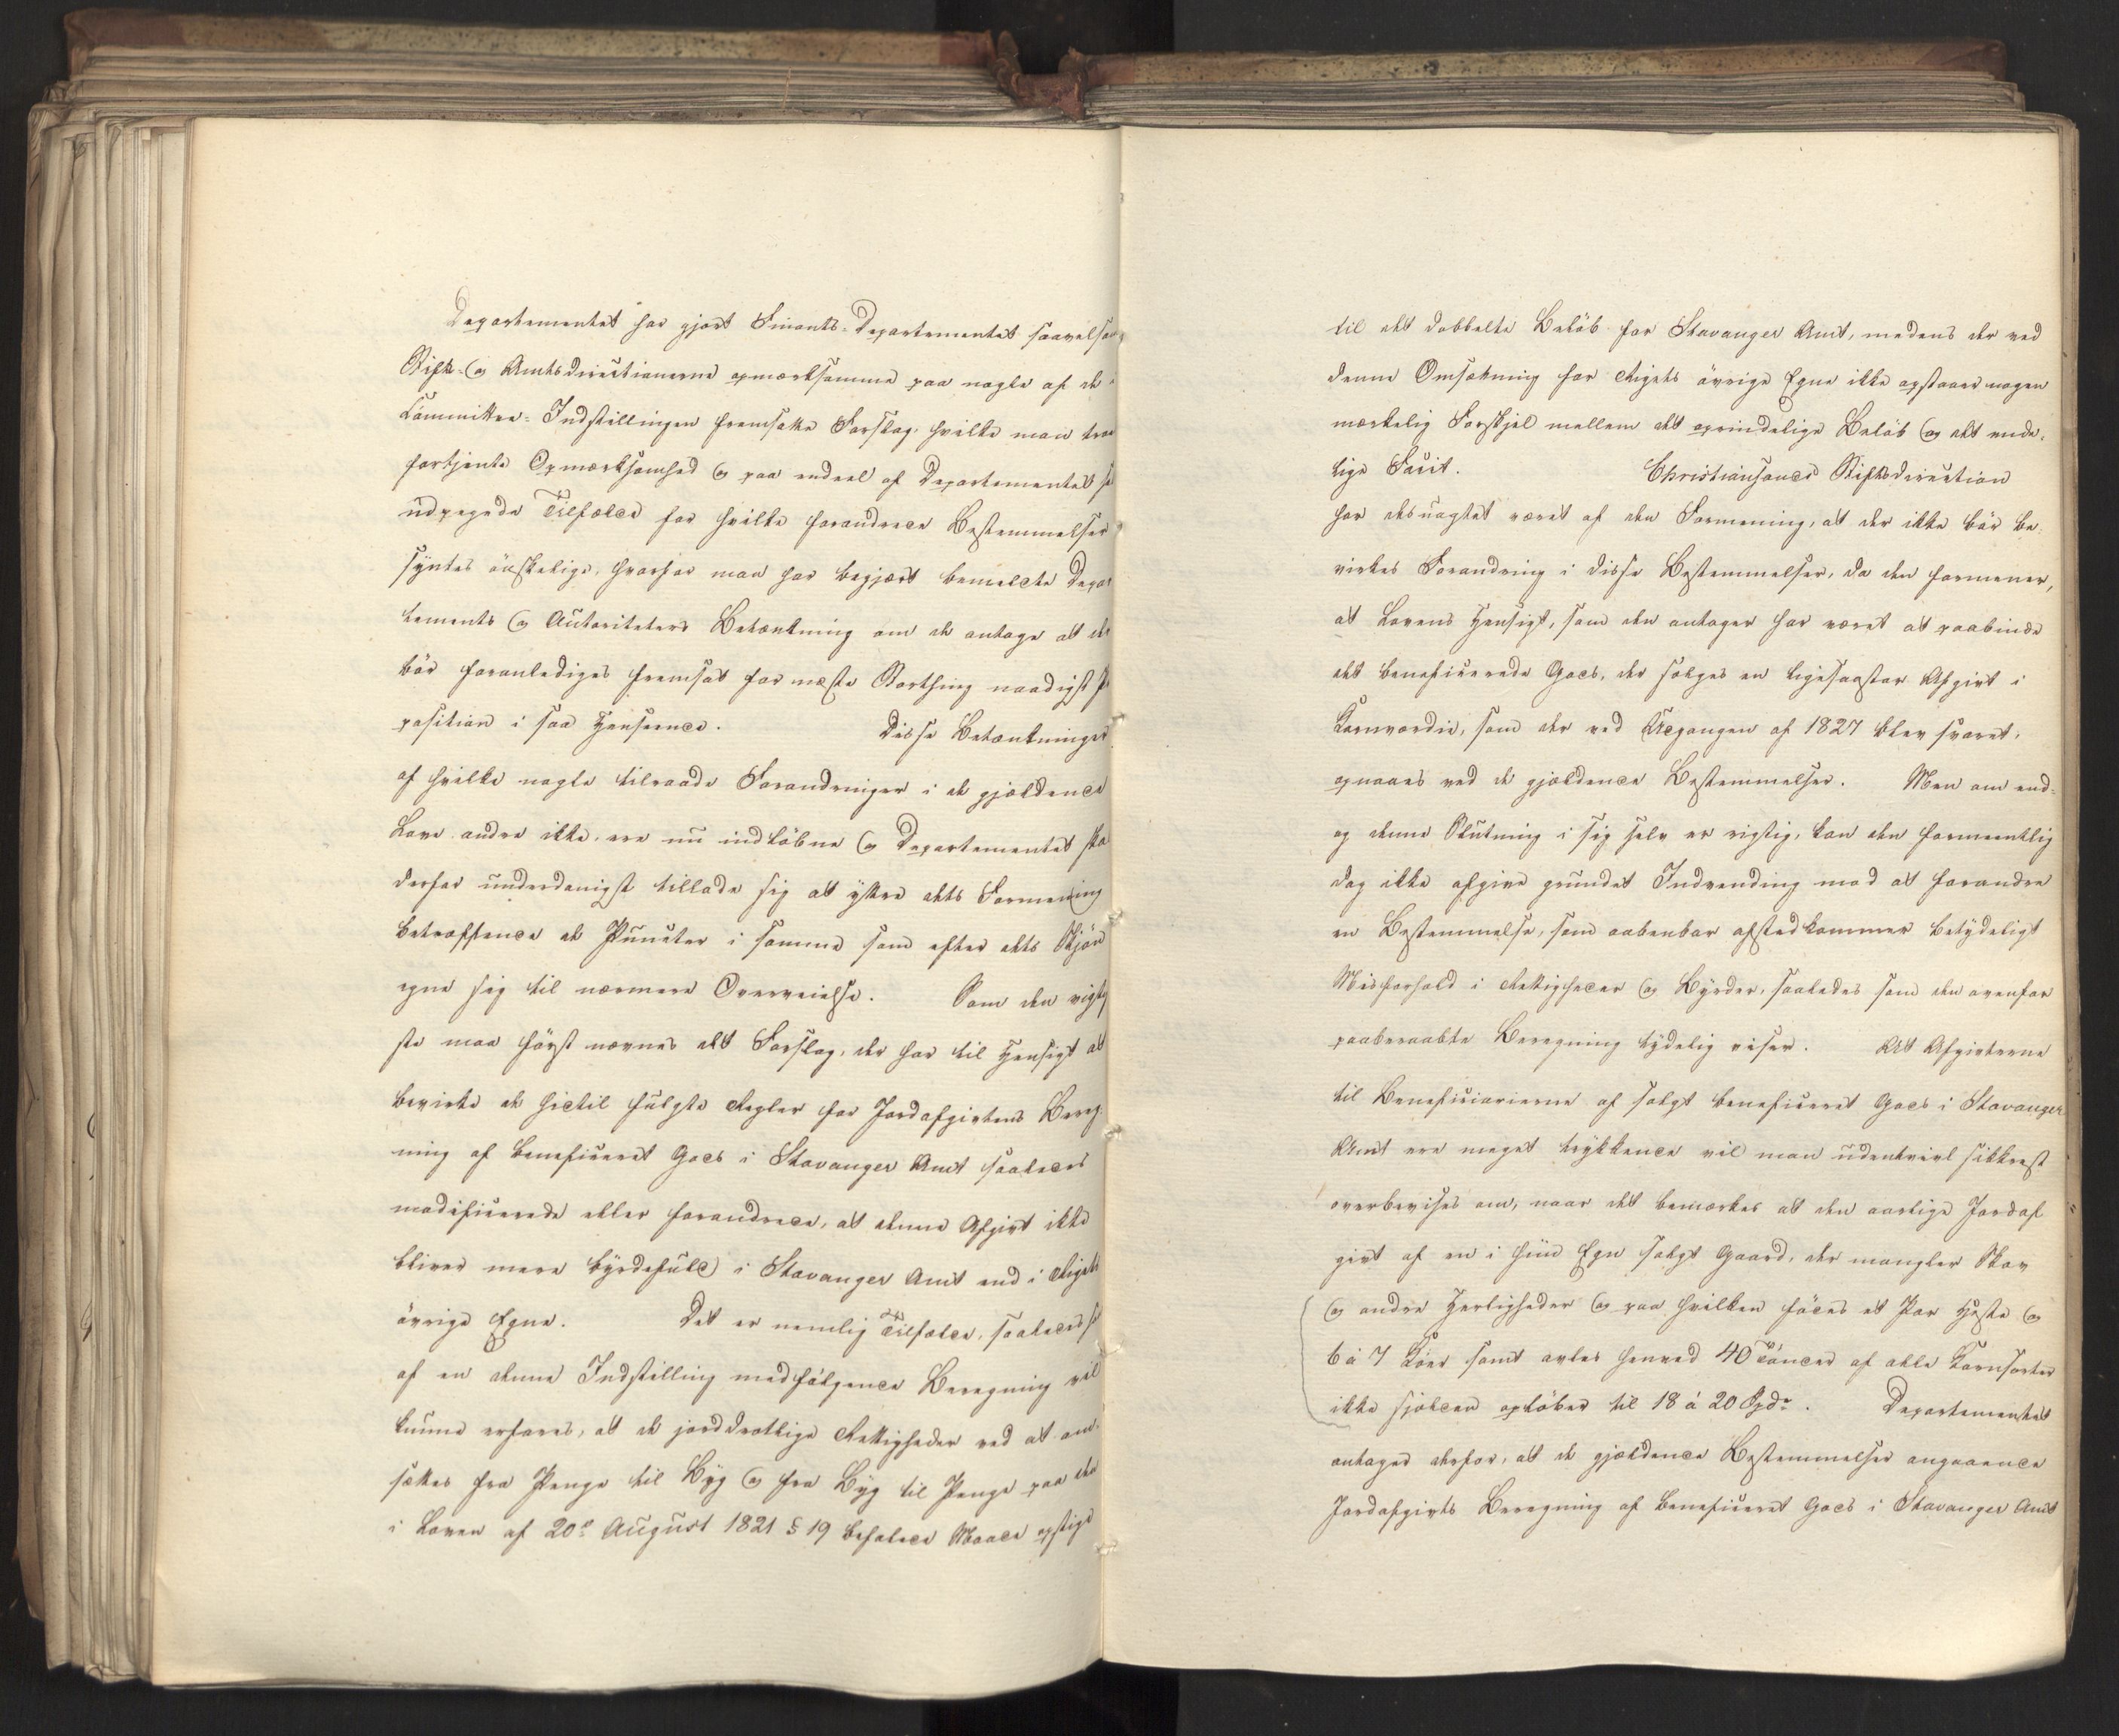 Departementet har gjort Finants-Departementet saavelsom
Stifts- og Amtsdirectionerne opmærksomme paa nogle af de i
Committee-Indstillingen fremsatte Forslag, hvilke man troe
fortjente Opmærksomhed og paa endeel af Departementet
udpegede Tilfælde for hvilke forandrede Bestemmelser
syntes önskelige, hvorfor man har begjært bemeldte Depar
tements og Autoriteters Betænkning om de antage at der
bör foranlediges fremsat for næste Storthing naadigst Pro
position i saa Henseende. Disse Betænkninger
af hvilke nogle tilraade Forandringer i de gjældende
Love andre ikke, ere nu indlöbne og Departementet skal
derfor underdanigst tillade sig at yttre dets Formening
betræffende de Puncter i samme som efter dets Skjön
egne sig til nærmere Overveielse. Som den vigtig
ste maa först nævnes det Forslag, der har til Hensigt at
bevirke de hidtil fulgte Regler for Jordafgivtens Bereg
ning af beneficeret Gods i Stavanger Amt saaledes
modificerede eller forandrede, at denne Afgivt ikke
bliver mere byrdefuld i Stavanger Amt end i Rigets
övrige Egne. Det er nemlig Tilfældet, saaledes so
af en denne Indstilling medfölgende Beregning vil
kunne erfares, at de jorddrotlige Rettigheder ved at om-
sættes fra Penge til Byg og fra Byg til Penge paa den
i Loven af 20de August 1821 § 19 befalede Maade opstige
til det dobbelte Belöb for Stavanger Amt, medens der ved
denne Omsætning for Rigets övrige Egne ikke opstaaer nogen
mærkelig Forskjel mellem det oprindelige Belöb og det ende-
lige Facit. Christiansands Stiftsdirection
har desuagtet været af den Formening, at der ikke bör be-
virkes Forandring i disse Bestemmelser, da den formener,
at Lovens Hensigt, som den antager har været at paabinde
det beneficerede Gods, der sælges en ligesaastor Afgivt i
Kornværdie, som der ved Udgangen af 1827 blev svaret,
opnaaes ved de gjældende Bestemmelser. Men om end-
og denne Slutning i sig selv er rigtig, kan den formeentlig
dog ikke afgive grundet Indvending mod at forandre
en Bestemmelse, som aabenbar afstedkommer betydeligt
Misforhold i Rettigheder og Byrder, saaledes som den ovenfor
paaberaabte Beregning tydelig viser. At Afgivterne
til Beneficiarierne af solgt beneficeret Gods i Stavanger
Amt ere meget trykkende vil man udentvivl sikkrest
overbevises om, naar det bemærkes at den aarlige Jordaf
givt af en i hiin Egn solgt Gaard, der mangler Skov
og andre Herligheder og paa hvilken födes et Par Heste og
6 à 7 Köer samt avles henved 40 Tönder af alle Kornsorter
ikke sjelden oplöber til 18 à 20 Spdr. Departementet
antager derfor, at de gjældende Bestemmelser angaaende
Jordafgivts Beregning af beneficeret Gods i Stavanger Amt